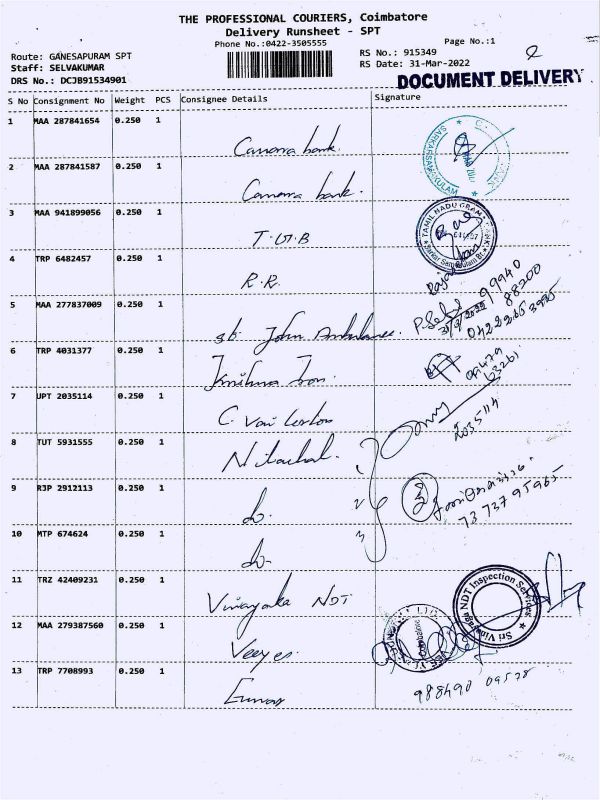 THE PROFESSIONAL COURIERS, Coimbatore
Delivery Runsheet - SPT
Phone No.:0422-3505555
Page No.:1
Route: GANESAPURAM SPT
RS No.: 915349
Staff: SELVAKUMAR
RS Date: 31-Mar-2022
DRS No.: DCJB91534901
DOCUMENT DELIVERY
S No Consignment No Weight PCS Consignee Details Signature
1 MAA 287841654 0.250 1
Canara bank.
2 MAA 287841587 0.250 1
Canara bank.
3 MAA 941899056 0.250 1
T.G.B
4 TRP 6482457 0.250 1
R.R.
5 MAA 277837009 0.250 1
St. John Ambulance.
6 TRP 4031377 0.250 1
Krishna Iron.
7 UPT 2035114 0.250 1
2035114
8 TUT 5931555 0.250 1
Nilachal.
9 RJP 2912113 0.250 1
do.
73737 95965
10 MTP 674624 0.250 1
do.
11 TRZ 42409231 0.250 1
Vinayaka NDT
Sri Vinayaga NDT Inspection Services
12 MAA 279387560 0.250 1
Veeyes.
13 TRP 7708993 0.250 1